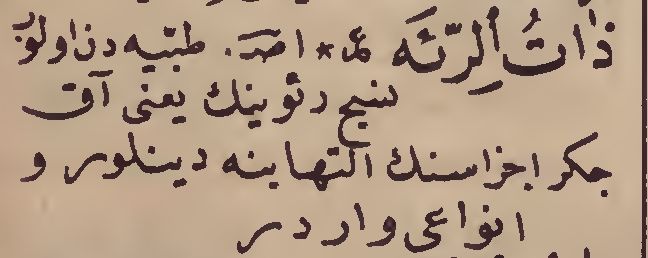 ذَاتُ الرِّئَه ع * اصـ. طبيه دن اولوب
نسيج رئوينك يعنى آق
جكر اجزاسنك التهابنه دينلور و
انواعى واردر